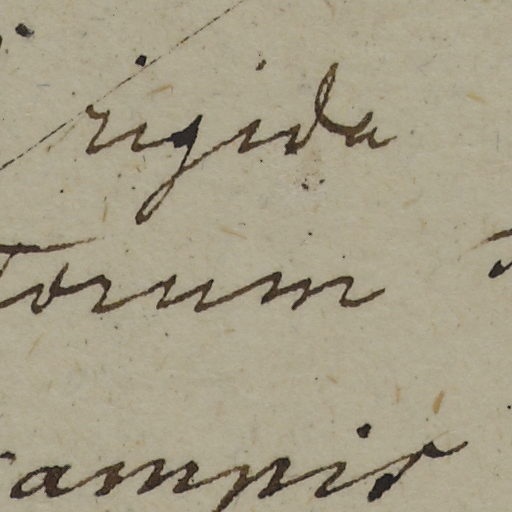 rigida
torum
campis